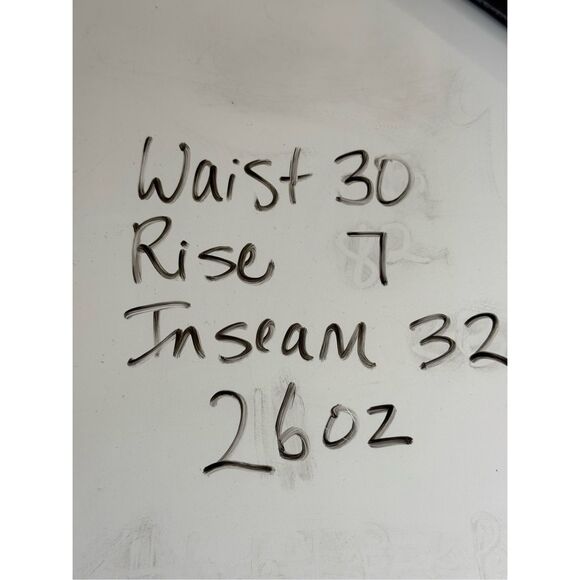 Waist 30
Rise 7
Inseam 32
26oz